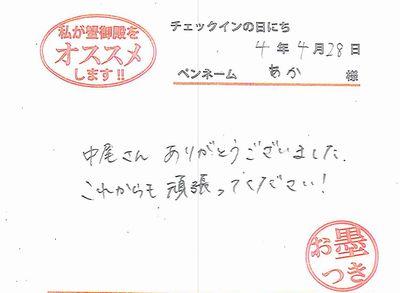 私が蟹御殿を
オススメ
します!!
チェックインの日にち
4年4月28日
ペンネーム あか 様
中尾さん ありがとうございました.
これからも頑張ってください!
お墨
つき